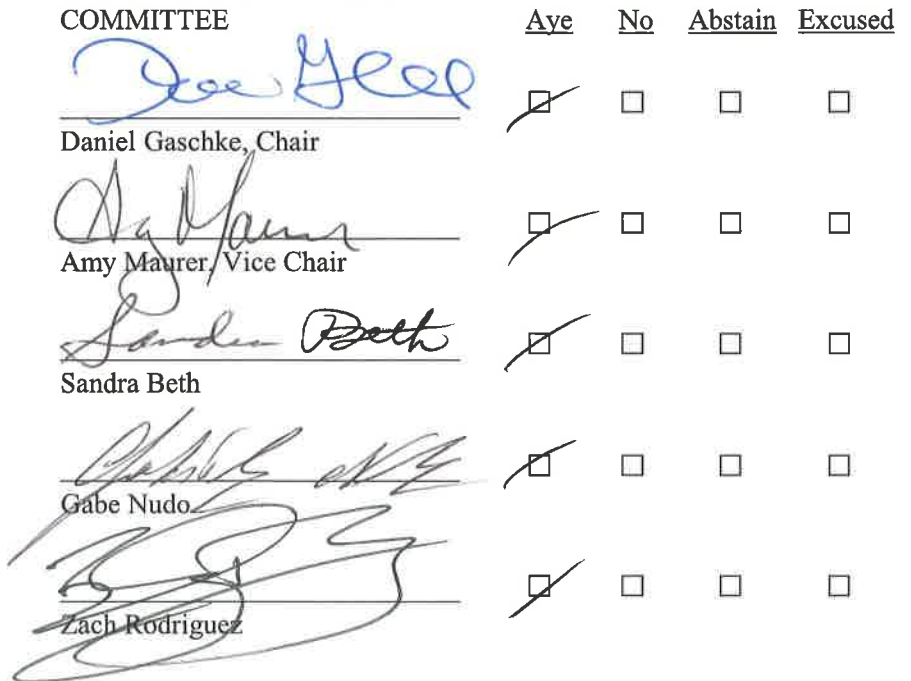 COMMITTEE Aye No Abstain Excused
Daniel Gaschke, Chair
Amy Maurer, Vice Chair
Sandra Beth
Sandra Beth
Gabe Nudo
Zach Rodriguez